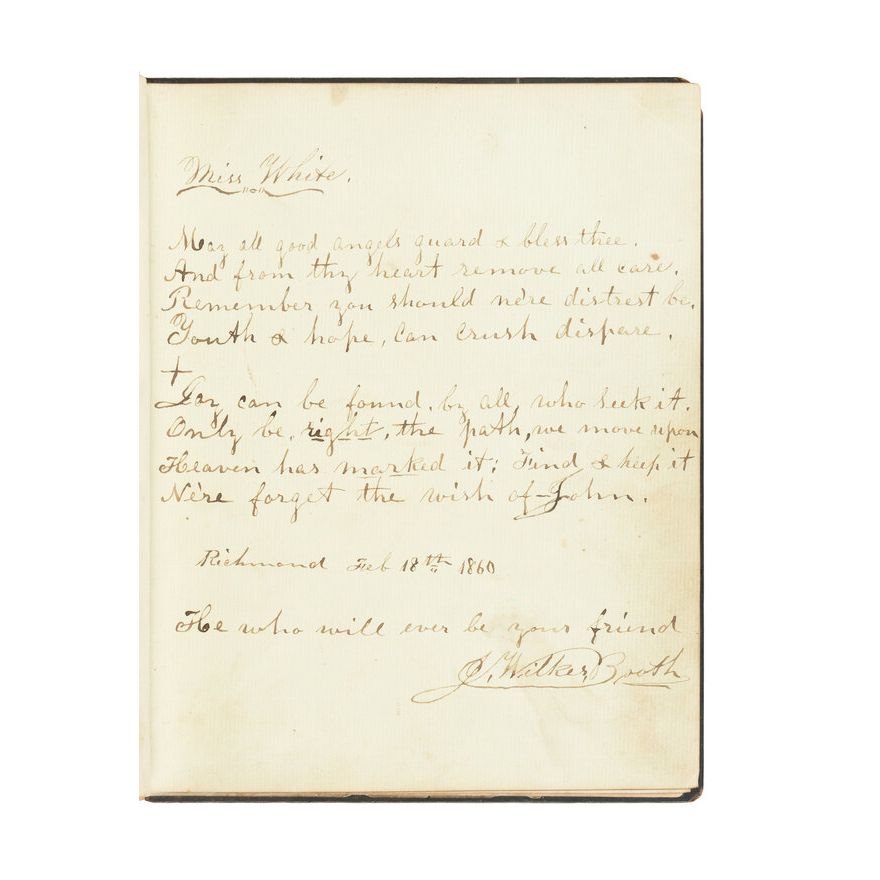 Miss White.
May all good angels guard & bless thee.
And from thy heart remove all care.
Remember you should ne're distrest be.
Youth & hope, can crush dispare.
Joy can be found, by all, who seek it.
Only be, right, the path, we move upon
Heaven has marked it: Find & keep it
Ne're forget the wish of—John.
Richmond Feb 18th 1860
He who will ever be your friend
J. Wilkes Booth